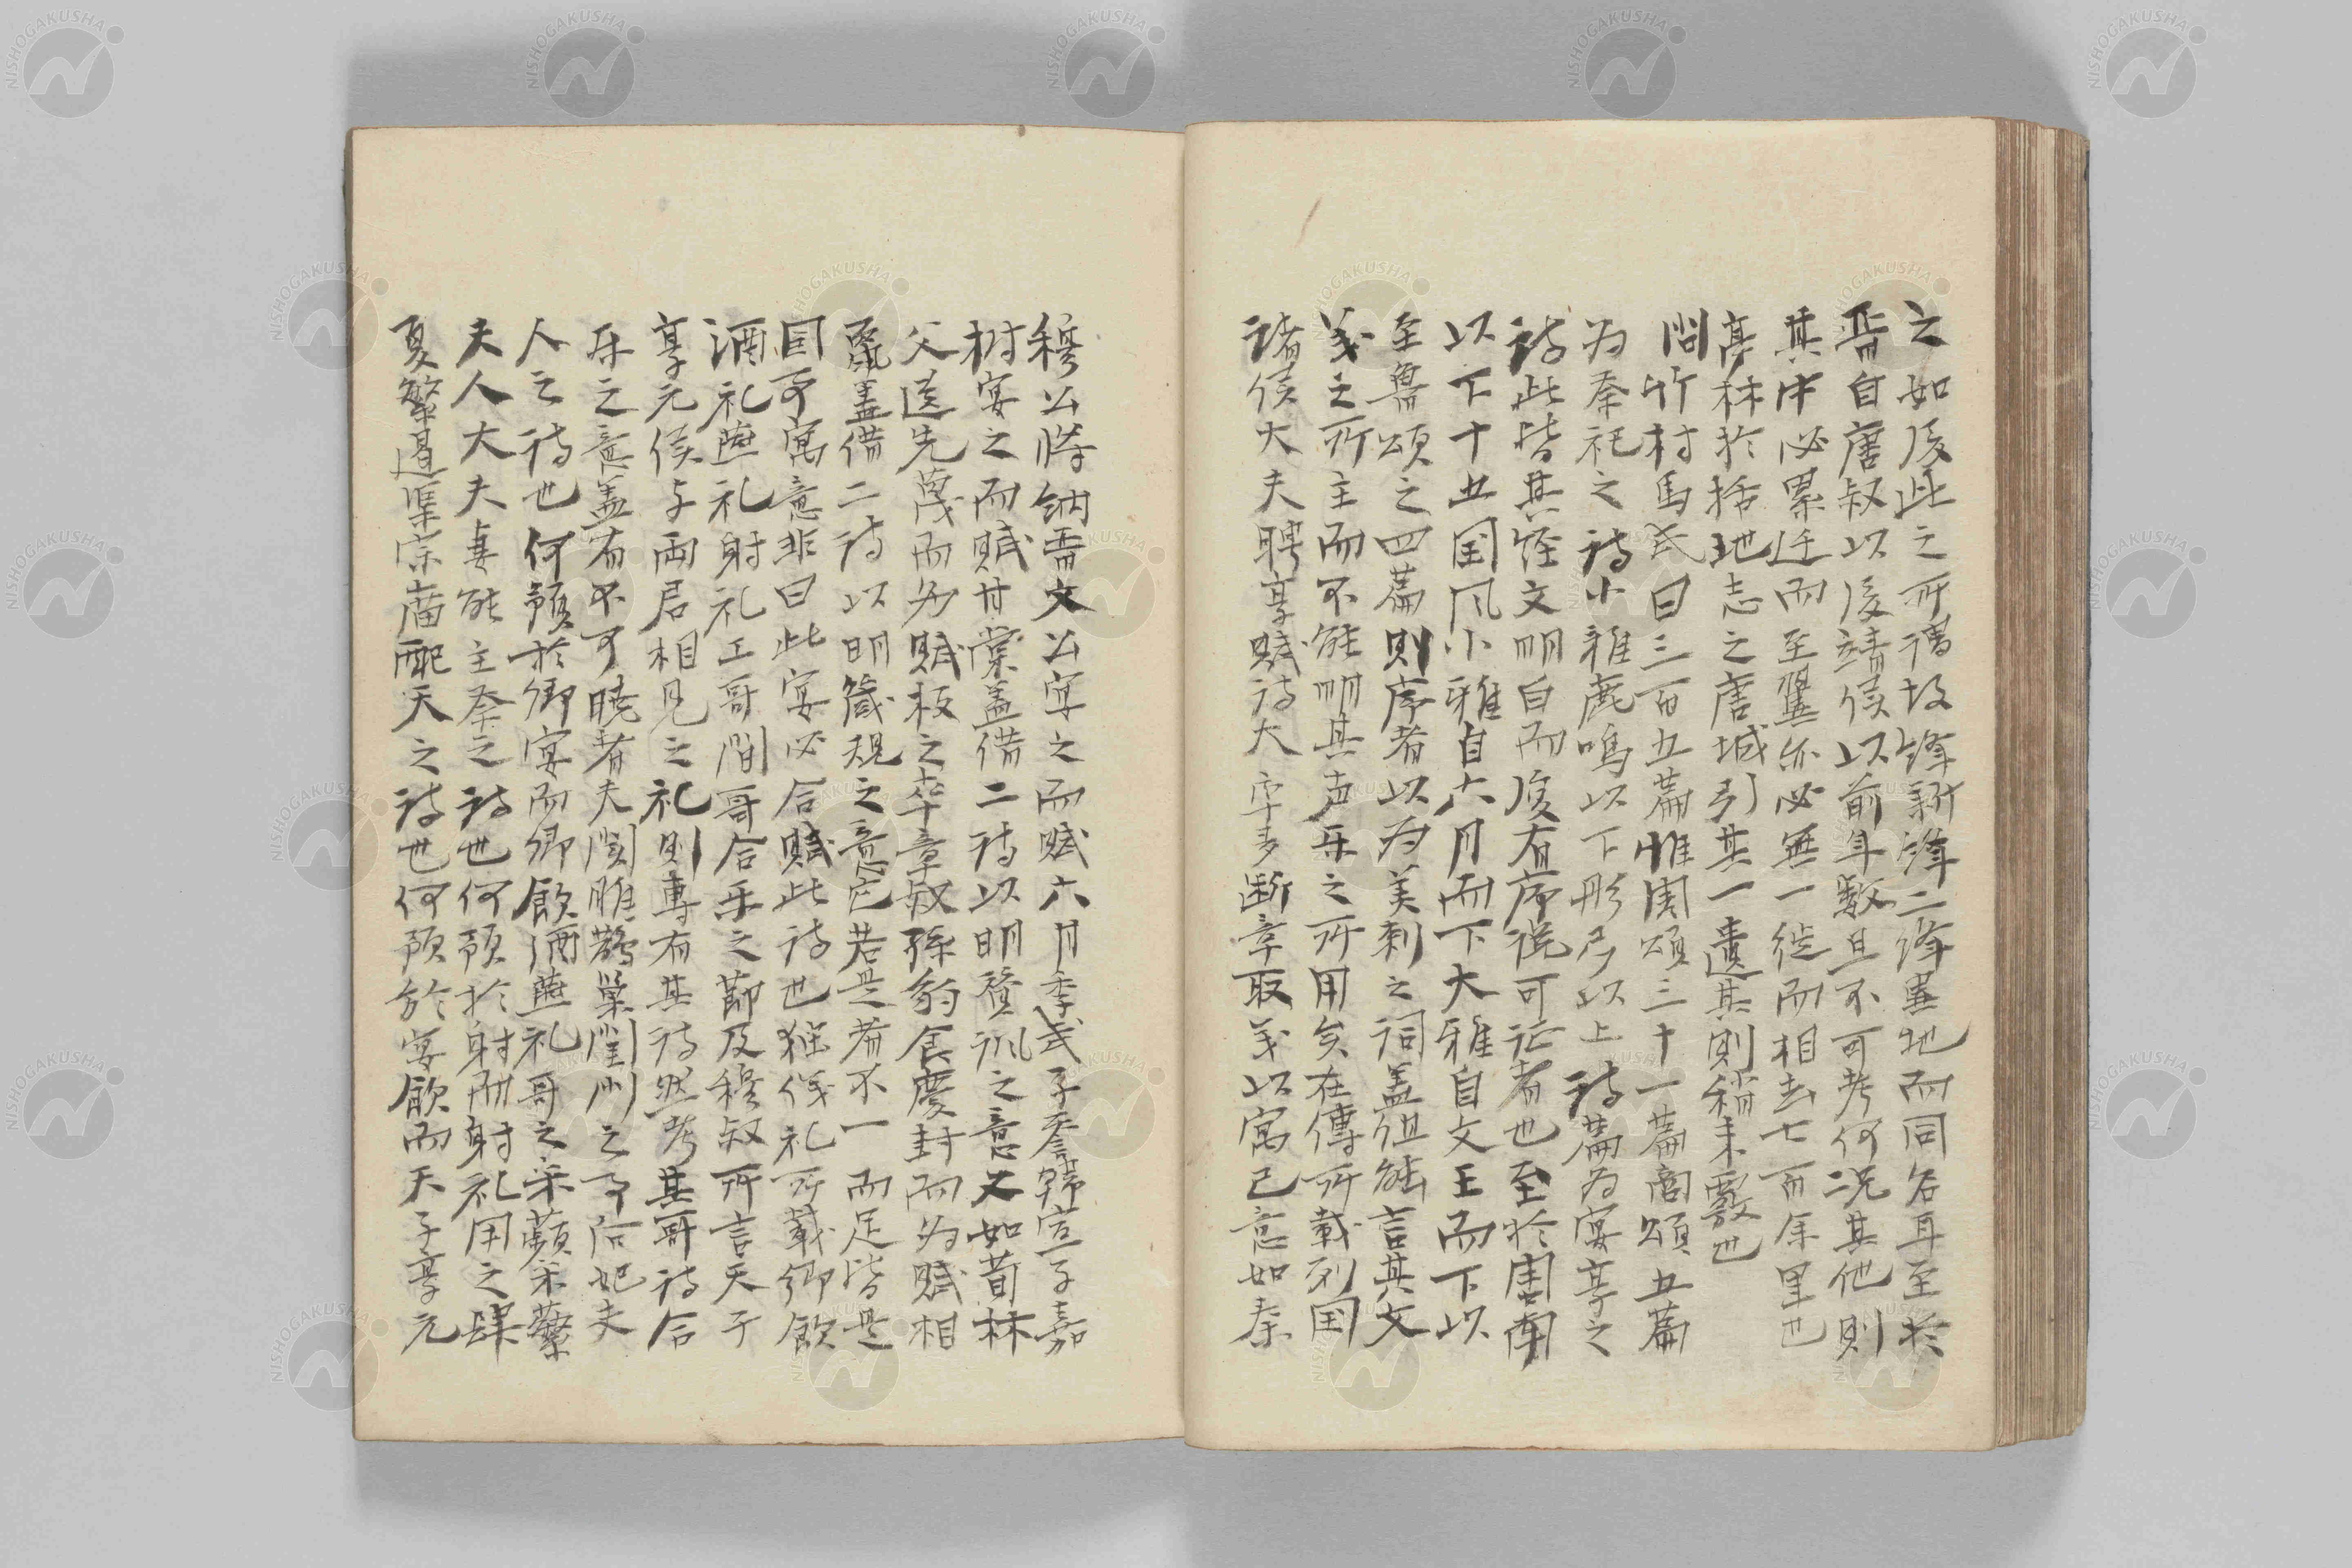 之如後此之所謂故絳新絳二絳異地而同名耳至於
晋自唐叔以後靖侯以前年数且不可考何況其他則
其中必累迁而至翼亦必無一徙而相去七百余里也
亭林於括地志之唐城引其一遺其則稍未覈也
問竹村馬氏曰三百五篇惟周頌三十一篇商頌五篇
為奉祀之詩小雅鹿鳴以下彤弓以上詩篇為宴享之
詩此皆其経文明白而復有序説可証者也至於周南
以下十五国風小雅自六月而下大雅自文王而下以
至魯頌之四篇則序者以為美刺之詞盖但能言其文
義之所主而不能明其声乐之所用矣在傳所載列国
諸侯大夫聘享賦詩大率多断章取義以寓己意如秦
穆公將納晋文公宴之而賦六月季武子奉韓宣子嘉
樹宴之而賦甘棠盖借二詩以明賛諷之意又如荀林
父送先蔑而為賦板之卒章叔孫豹食慶封而為賦相
鼠盖借二詩以明箴規之意它若是者不一而足皆是
因可寓意非曰此宴必合賦此詩也独儀礼所載卿飲
酒礼燕礼射礼工哥間哥合乐之節及穆叔所言天子
享元侯与両君相見之礼則専有其詩然考其哥詩合
乐之意盖有不可曉者夫関雎鵲巣閨門之事后妃夫
人之詩也何預於卿宴而卿飲酒燕礼哥之采蘋采蘩
夫人大夫妻能主祭之詩也何預於射而射礼用之肆
夏繁遏渠宗廟配天之詩也何預於宴飲而天子享元